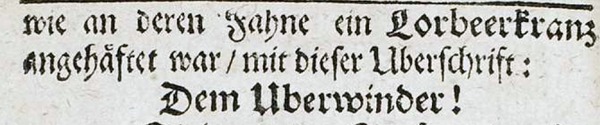 wie an deren Fahne ein Lorbeerkranz
angehäftet war / mit dieser Uberschrift:
Dem Uberwinder!